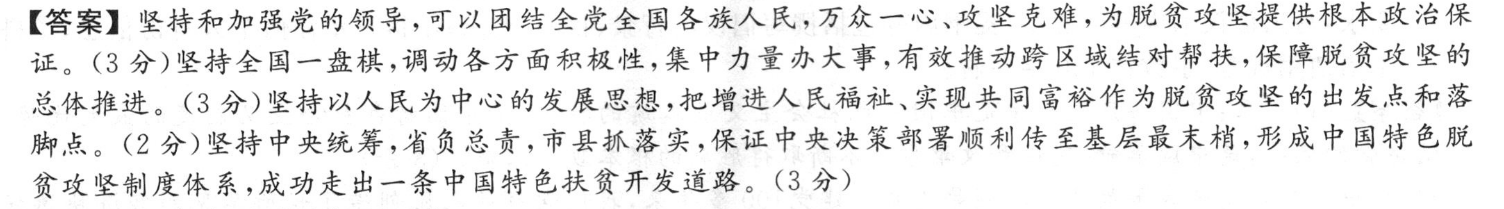 【答案】坚持和加强党的领导,可以团结全党全国各族人民,万众一心、攻坚克难,为脱贫攻坚提供根本政治保
证。(3分)坚持全国一盘棋,调动各方面积极性,集中力量办大事,有效推动跨区域结对帮扶,保障脱贫攻坚的
总体推进。(3分)坚持以人民为中心的发展思想,把增进人民福祉、实现共同富裕作为脱贫攻坚的出发点和落
脚点。(2分)坚持中央统筹,省负总责,市县抓落实,保证中央决策部署顺利传至基层最末梢,形成中国特色脱
贫攻坚制度体系,成功走出一条中国特色扶贫开发道路。(3分)